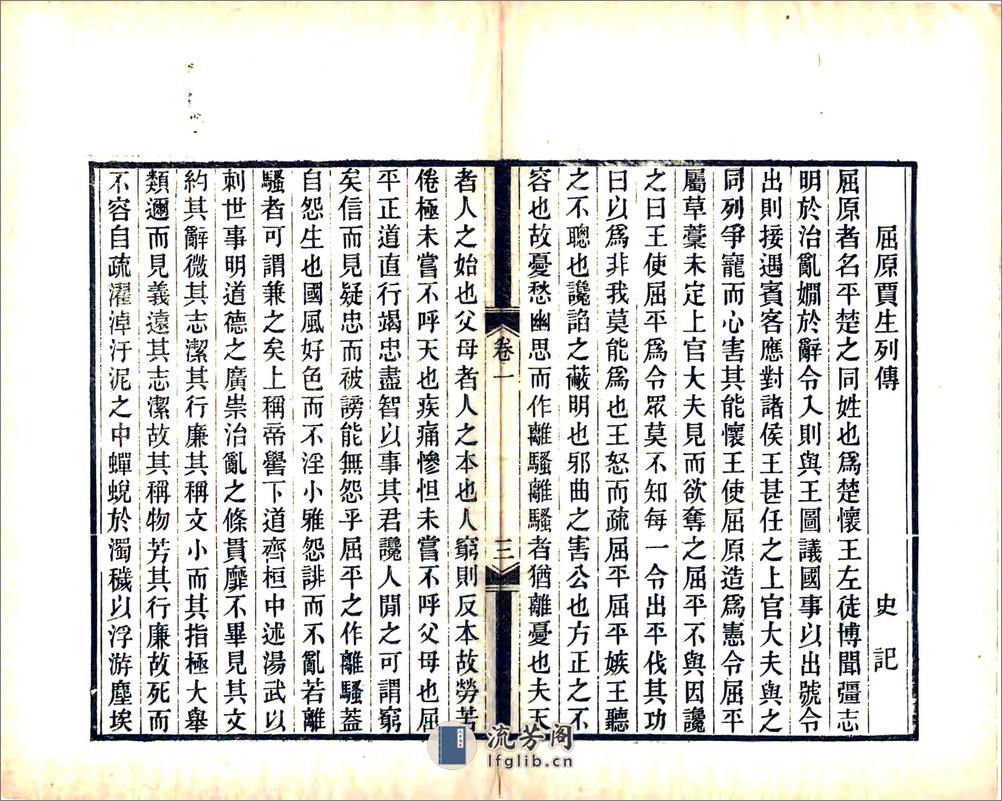 屈原賈生列傳 史記
屈原者名平楚之同姓也爲楚懷王左徒博聞彊志
明於治亂嫺於辭令入則與王圖議國事以出號令
出則接遇賓客應對諸侯王甚任之上官大夫與之
同列爭寵而心害其能懷王使屈原造爲憲令屈平
屬草藁未定上官大夫見而欲奪之屈平不與因讒
之曰王使屈平爲令眾莫不知每一令出平伐其功
曰以爲非我莫能爲也王怒而疏屈平屈平嫉王聽
之不聰也讒諂之蔽明也邪曲之害公也方正之不
容也故憂愁幽思而作離騷離騷者猶離憂也夫天
卷一 三
者人之始也父母者人之本也人窮則反本故勞苦
倦極未嘗不呼天也疾痛慘怛未嘗不呼父母也屈
平正道直行竭忠盡智以事其君讒人閒之可謂窮
矣信而見疑忠而被謗能無怨乎屈平之作離騷蓋
自怨生也國風好色而不淫小雅怨誹而不亂若離
騷者可謂兼之矣上稱帝嚳下道齊桓中述湯武以
刺世事明道德之廣崇治亂之條貫靡不畢見其文
約其辭微其志潔其行廉其稱文小而其指極大舉
類邇而見義遠其志潔故其稱物芳其行廉故死而
不容自疏濯淖汙泥之中蟬蛻於濁穢以浮游塵埃
流芳阁
lfglib.cn